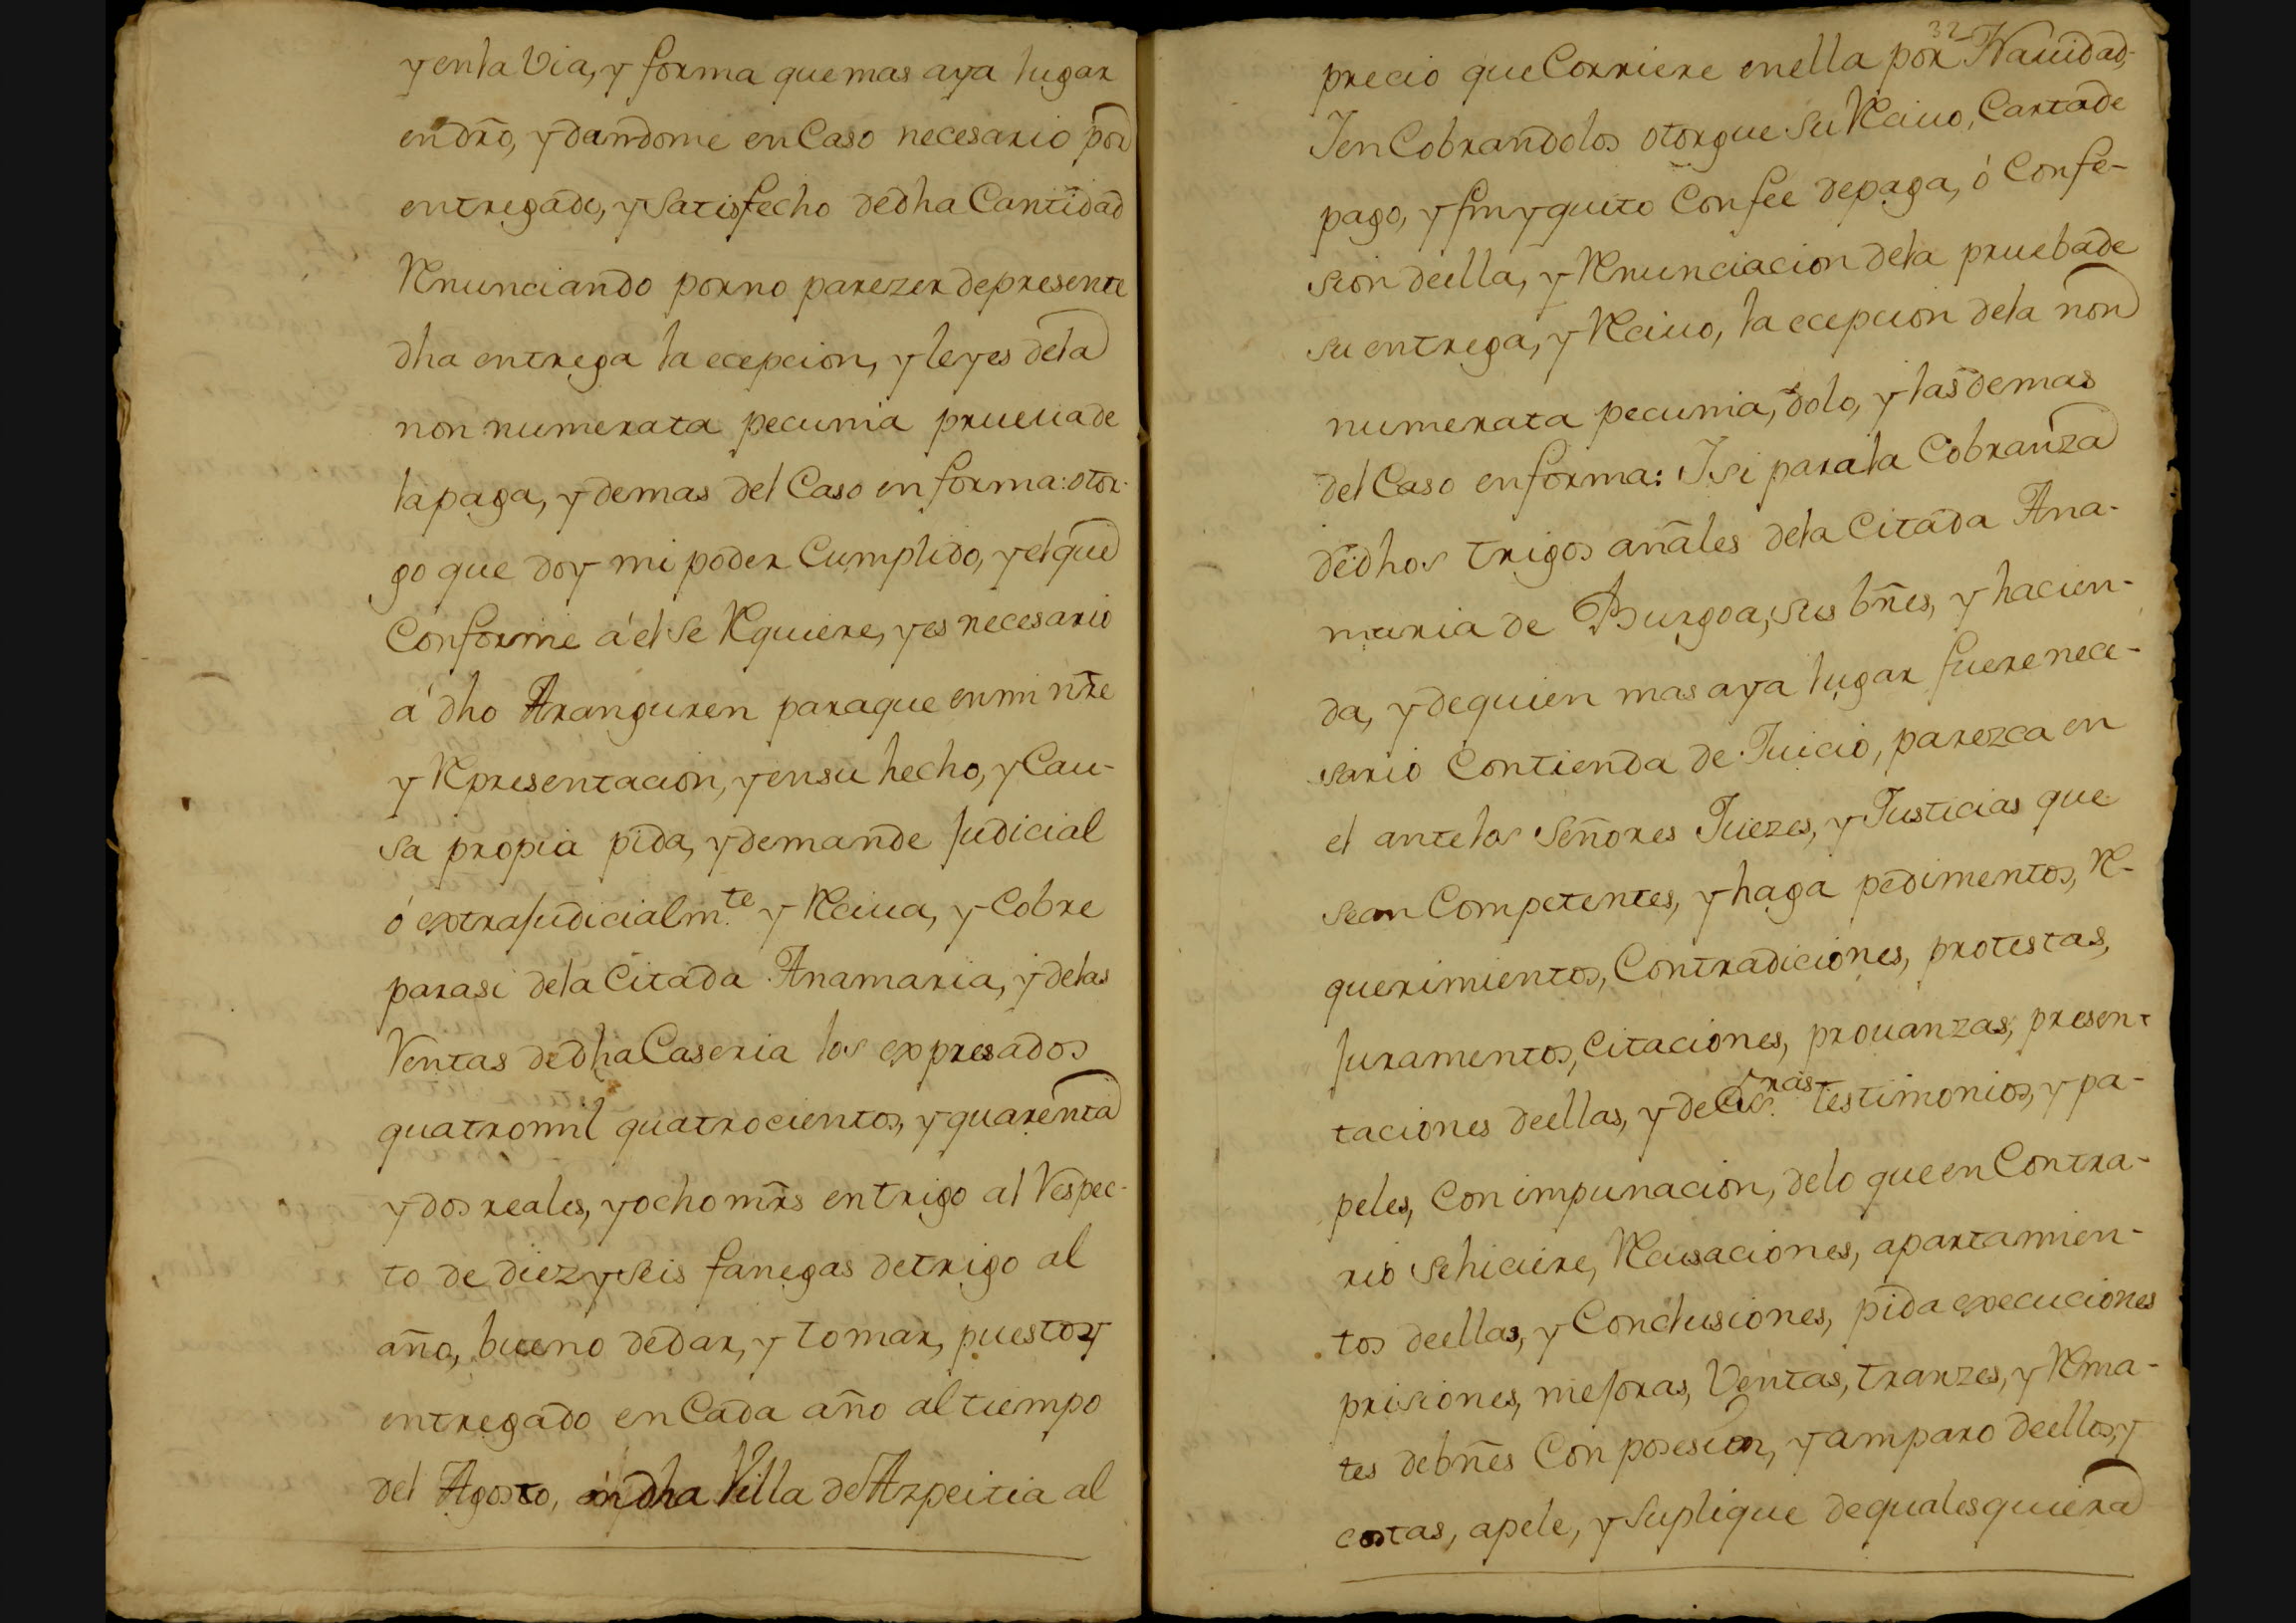 y en la Via, y forma que mas aya lugar
en dr̃o, y dandome en Caso necesario por
entregado, y Satisfecho de dha Cantidad
Renunciando por no parezer de presente
dha entrega la ecepcion, y leyes de la
non numerata pecunia prueua de
la paga, y demas del Caso en forma: otor-
go que doy mi poder Cumplido, y el que
Conforme á el se Requiere, y es necesario
á dho Aranguren para que en mi nr̃e
y Representacion, y en su hecho, y Cau-
sa propia pida, y demande Judicial
ó extraJudicialm.te y Reciua, y Cobre
para si de la Citada Anamaria, y de las
Ventas de dha Caseria los expresados
quatro mil quatrocientos, y quarenta
y dos reales, y ocho mr̃s en trigo al Respec-
to de diez y seis fanegas de trigo al
año, bueno de dar, y tomar, puesto, y
entregado en Cada año al tiempo
del Agosto, en dha Villa de Azpeitia al
32
precio que Corriere en ella por Nauidad,
I en Cobrandolos otorgue su Reciuo, Carta de
pago, y fin y quito Con fee de paga, ó Confe-
sion de ella, y Renunciacion de la prueba de
su entrega, y Reciuo, la ecepcion de la non
numerata pecunia, dolo, y las demas
del Caso en forma: I si para la Cobranza
de dhos trigos añales de la Citada Ana-
maria de Burgoa, sus bñes, y hacien-
da, y de quien mas aya lugar fuere nece-
sario Contienda de Juicio, parezca en
el ante los Señores Juezes, y Justicias que
sean Competentes, y haga pedimentos, Re-
querimientos, Contradiciones, protestas,
Juramentos, Citaciones, prouanzas, presen-
taciones de ellas, y de Escr.ras testimonios, y pa-
peles, Con impunacion, de lo que en Contra-
rio se hiciere, Recusaciones, apartamien-
tos de ellas, y Conclusiones, pida execuciones
prisiones, meJoras, Ventas, tranzes, y Rema-
tes de bñes Con posesion, y amparo de ellos, y
costas, apele, y Suplique de qualesquiera